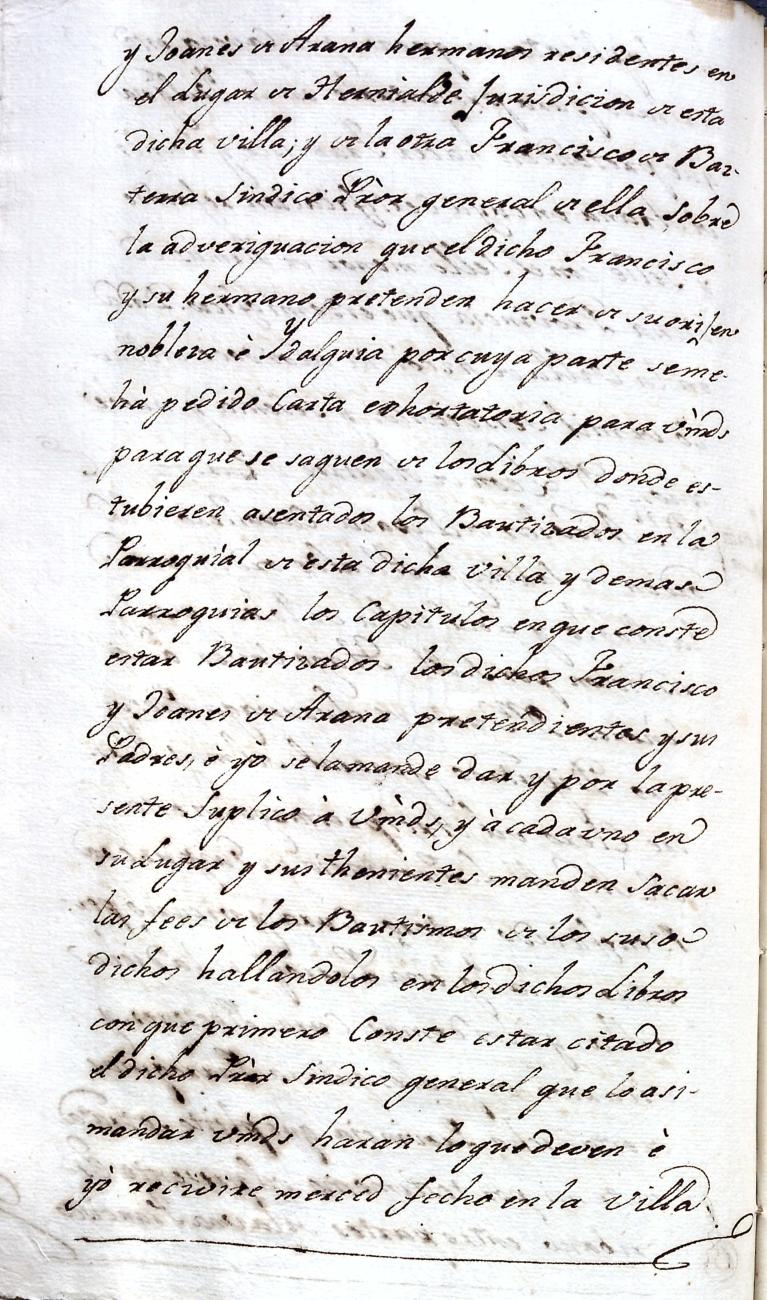 y Joanes de Arana hermanos residentes en
el Lugar de Hernialde Jurisdicion de esta
dicha villa; y de la otra Francisco de Bar-
terra Sindico Pr̀or general de ella sobre
la adveriguacion que el dicho Francisco
y su hermano pretenden hacer de su orijen
nobleza è Ydalguia por cuya parte se me-
hà pedido Carta exhortatoria para vm̀ds
para que se saquen de los Libros donde es-
tubieren asentados los Bautizados en la
Parroquìal de esta dicha villa y demas
Parroquias los Capitulos en que conste
estar Bautizados los dichos Francisco
y Joanes de Arana pretendientes y sus
Padres, è yò se la mande dar y por la pre-
sente Suplico à vm̀ds, y à cada uno en
su Lugar y sus thenientes manden Sacar
las fees de los Bautismos de los suso
dichos hallandolos en los dichos Libros
con que primero Conste estar citado
el dicho Pr̀or Sindico general que lo asi-
mandar vm̀ds haran lo que deven è
yò recivire merced fecho en la villa